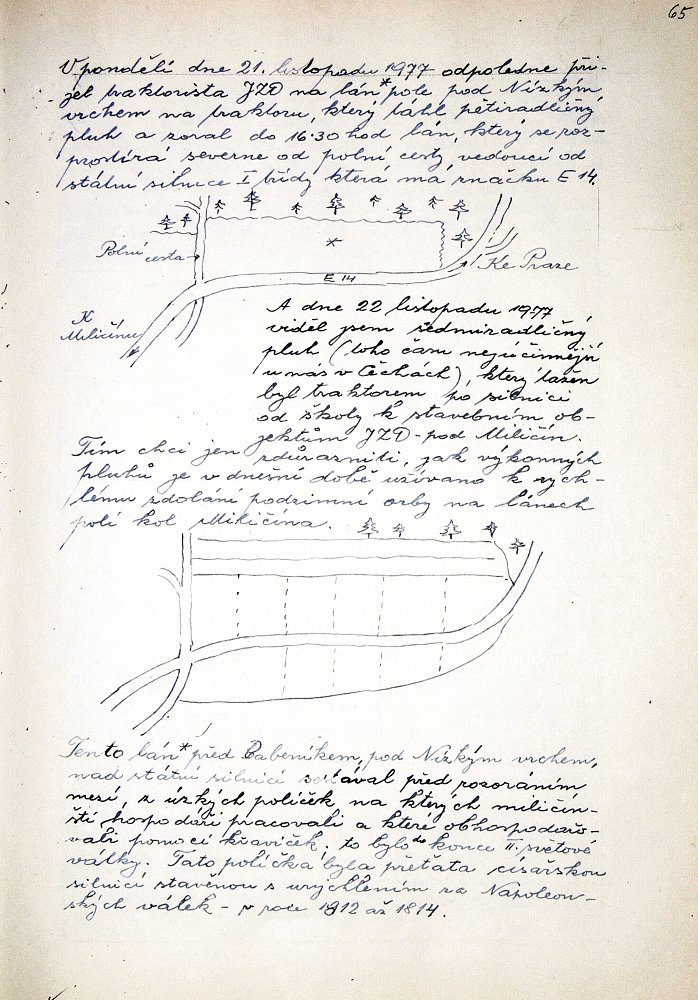 65
V pondělí dne 21. listopadu 1977 odpoledne při-
jel traktorista JZD na lán* pole pod Nízkým
vrchem na traktoru, který táhl pětiradličný
pluh a zoral do 16·30 hod lán, který se roz-
prostírá severně od polní cesty, vedoucí od
státní silnice I třídy která má značku E 14.
*
Polní
cesta
E 14
Ke Praze
K
Miličínu
A dne 22 listopadu 1977
viděl jsem sedmiradličný
pluh (toho času nejúčinnější
u nás v Čěchách), který tažen
byl traktorem po silnici
od školy k stavebním ob-
jektům JZD-pod Miličín.
Tím chci jen zdůrazniti, jak výkonných
pluhů je v dnešní době užíváno k rych-
lému zdolání podzimní orby na lánech
polí kol Miličína.
Tento lán* před Babeníkem, pod Nízkým vrchem,
nad státní silnicí sestával před rozoráním
mezí, z úzkých políček na kterých miličín-
ští hospodáři pracovali a které obhospodařo-
vali pomocí kraviček; to bylo do konce II. světové
války. Tato políčka byla přeťata císařskou
silnicí stavěnou s urychlením za Napoleon-
ských válek - v roce 1812 až 1814.